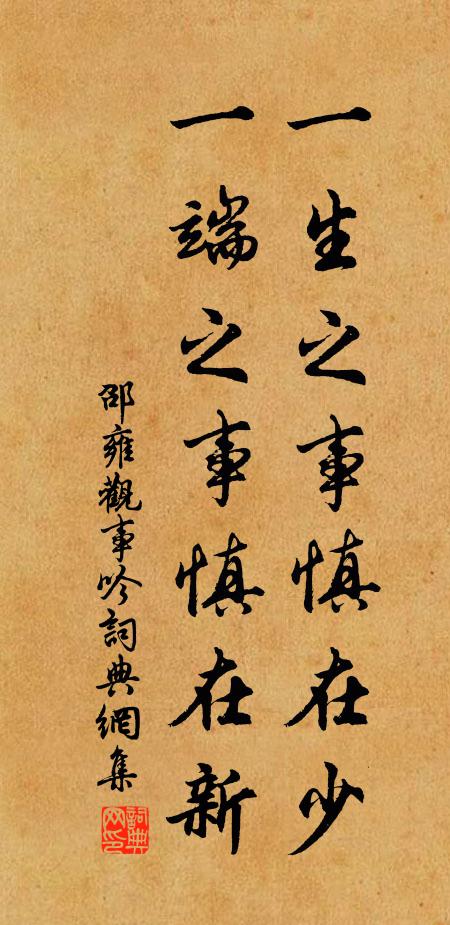 一生之事慎在少
一端之事慎在新
邵雍觀事吟詞典網集
詞典网印